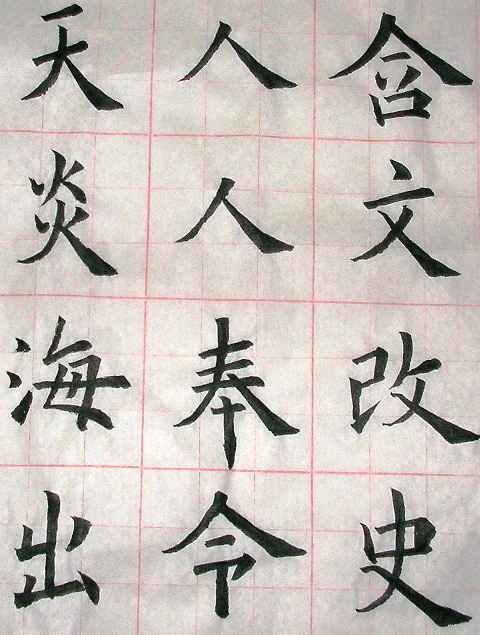 含文改史
人人奉令
天炎海出